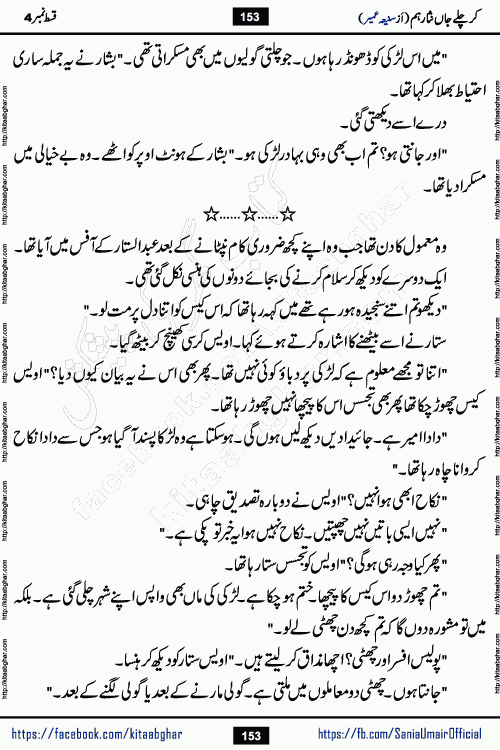 کر چلے جاں نثار ہم (از سنیعہ عمیر)
153
قسط نمبر 4
"میں اس لڑکی کو ڈھونڈ رہا ہوں۔ جو چلتی گولیوں میں بھی مسکراتی تھی۔" بشار نے یہ جملہ ساری
احتیاط بھلا کر کہا تھا۔
درے اسے دیکھتی گئی۔
"اور جانتی ہو؟ تم اب بھی وہی بہادر لڑکی ہو۔" بشار کے ہونٹ اوپر کو اٹھے۔ وہ بے خیالی میں
مسکرا دیا تھا۔
☆......☆......☆
وہ معمول کا دن تھا جب وہ اپنے کچھ ضروری کام نپٹانے کے بعد عبدالستار کے آفس میں آیا تھا۔
ایک دوسرے کو دیکھ کر سلام کرنے کی بجائے دونوں کی ہنسی نکل گئی تھی۔
"دیکھو تم اتنے سنجیدہ ہو رہے تھے میں کہہ رہا تھا کہ اس کیس کو اتنا دل پر مت لو۔"
ستار نے اسے بیٹھنے کا اشارہ کرتے ہوئے کہا۔ اویس کرسی کھینچ کر بیٹھ گیا۔
"اتنا تو مجھے معلوم ہے کہ لڑکی پر دباؤ کوئی نہیں تھا۔ پھر بھی اس نے یہ بیان کیوں دیا؟" اویس
کیس چھوڑ چکا تھا پھر بھی تجسس اس کا پیچھا نہیں چھوڑ رہا تھا۔
"دادا امیر ہے۔ جائیدادیں دیکھ لیں ہوں گی۔ ہو سکتا ہے وہ لڑکا پسند آ گیا ہو جس سے دادا نکاح
کروانا چاہ رہا تھا۔"
"نکاح ابھی ہوا نہیں؟" اویس نے دوبارہ تصدیق چاہی۔
"نہیں ایسی باتیں نہیں چھپتیں۔ نکاح نہیں ہوا یہ خبر تو پکی ہے۔"
"پھر کیا وجہ رہی ہوگی؟" اویس کو تجسس ستا رہا تھا۔
"تم چھوڑ دو اس کیس کا پیچھا۔ ختم ہو چکا ہے۔ لڑکی کی ماں بھی واپس اپنے شہر چلی گئی ہے۔ بلکہ
میں تو مشورہ دوں گا کہ تم کچھ دن چھٹی لے لو۔"
"پولیس افسر اور چھٹی؟ اچھا مذاق کر لیتے ہیں۔" اویس ستار کو دیکھ کر ہنسا۔
"جانتا ہوں۔ چھٹی دو معاملوں میں ملتی ہے۔ گولی مارنے کے بعد یا گولی لگنے کے بعد۔"
https://facebook.com/kitaabghar
153
https://fb.com/SaniaUmairOfficial
http://kitaabghar.com